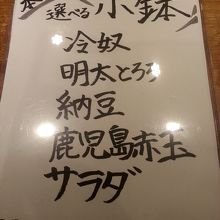 選べる小鉢
冷奴
明太とろろ
納豆
鹿児島赤玉
サラダ